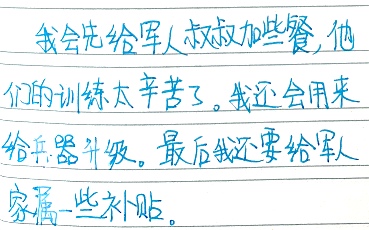 我会先给军人叔叔加些餐，他
们的训练太辛苦了。我还会用来
给兵器升级。最后我还要给军人
家属一些补贴。